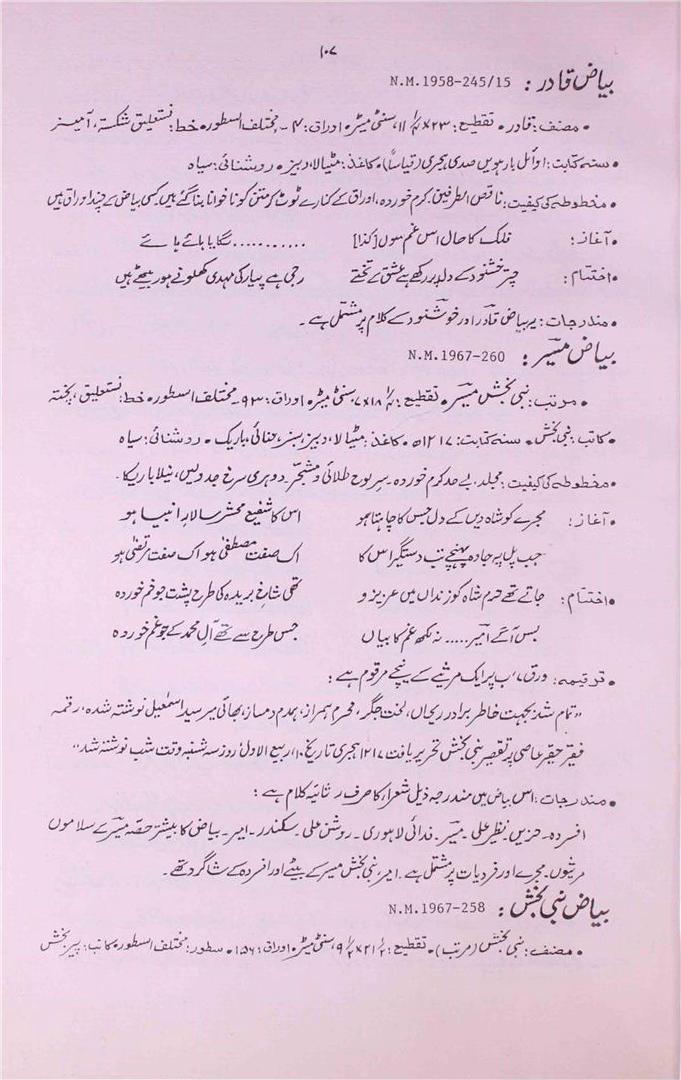 ۱۰۷
بیاض قادر : N.M.1958-245/15
• مصنف: قادر • تقطیع: ۲۳×۱۱ سنٹی میٹر • اوراق: ۴ - مختلف السطور • خط: نستعلیق شکستہ، آمیز
• سنہ کتابت: اوائل بارہویں صدی ہجری (قیاساً) • کاغذ: مٹیالا، دبیز • روشنائی: سیاہ
• مخطوطہ کی کیفیت: ناقص الطرفین، کرم خوردہ، اوراق کے کنارے ٹوٹ کر متن کو ناخوانا بنا گئے ہیں، کسی بیاض کے چند اوراق ہیں
• آغاز: فلک کا حال اس غم سوں [کذا] .......... لگایا ہائے ہائے
• اختتام: چتر خشنود کے دل پر رکھے ہے عشق کے تختے رجی ہے پیار کی مہدی کھلونے ہور بیٹھے ہیں
• مندرجات: یہ بیاض قادر اور خوشنود کے کلام پر مشتمل ہے ۔
بیاض میسر : N.M.1967-260
• مرتب: نبی بخش میسر • تقطیع: ۱۸×۷ سنٹی میٹر • اوراق: ۹۳ • مختلف السطور • خط: نستعلیق، پختہ
• کاتب: نبی بخش • سنہ کتابت: ۱۲۱۷ھ • کاغذ: مٹیالا، دبیز، سبز، حنائی، باریک • روشنائی: سیاہ
• مخطوطہ کی کیفیت: مجلد، بے حد کرم خوردہ • سرلوح طلائی و مشجّر • دوہری سرخ جدولیں، نیلا باریکا -
• آغاز: مجرے کو شاہ دیں کے دل جس کا چاہتا ہو اس کا شفیع محشر سالارِ انبیا ہو
جب پل پہ جادہ پہنچے تب دستگیر اس کا اک صفت مصطفیٰ ہو اک صفت مرتضیٰ ہو
• اختتام: جاتے تھے حرم شاہ کو زنداں میں عزیزو تھی شاخِ بریدہ کی طرح پشت جو خم خوردہ
بس آگے امیر ..... نہ لکھ غم کا بیاں جس طرح سے تھے آلِ محمد کے جو غم خوردہ
• ترقیمہ: ورق ۷ ب پر ایک مرثیے کے نیچے مرقوم ہے :
"تمام شد بجہت خاطر برادر بجاں، لخت جگر، محرم ہمراز، ہمدم دمساز، بھائی میر سید اسمٰعیل نوشتہ شدہ، رقمہ
فقیر حقیر عاصی پر تقصیر نبی بخش تحریر یافت ۱۲۱۷ ہجری تاریخ ۱۰، ربیع الاول روز سہ شنبہ وقت شب نوشتہ شد"
• مندرجات: اس بیاض میں مندرجہ ذیل شعراء کا صرف رثائیہ کلام ہے :
افسردہ - حزیں - نظر علی - میسر - فدائی لاہوری - روشن علی - سکندر - امیر - بیاض کا بیشتر حصہ میسر کے سلاموں
مرثیوں - مجرے اور فردیات پر مشتمل ہے - امیر، نبی بخش میسر کے بیٹے اور افسردہ کے شاگرد تھے -
بیاض نبی بخش : N.M.1967-258
• مصنف: نبی بخش (مرتب) • تقطیع: ۲۱×۹ سنٹی میٹر • اوراق: ۱۵۶ • سطور: مختلف السطور • کاتب: پیر بخش